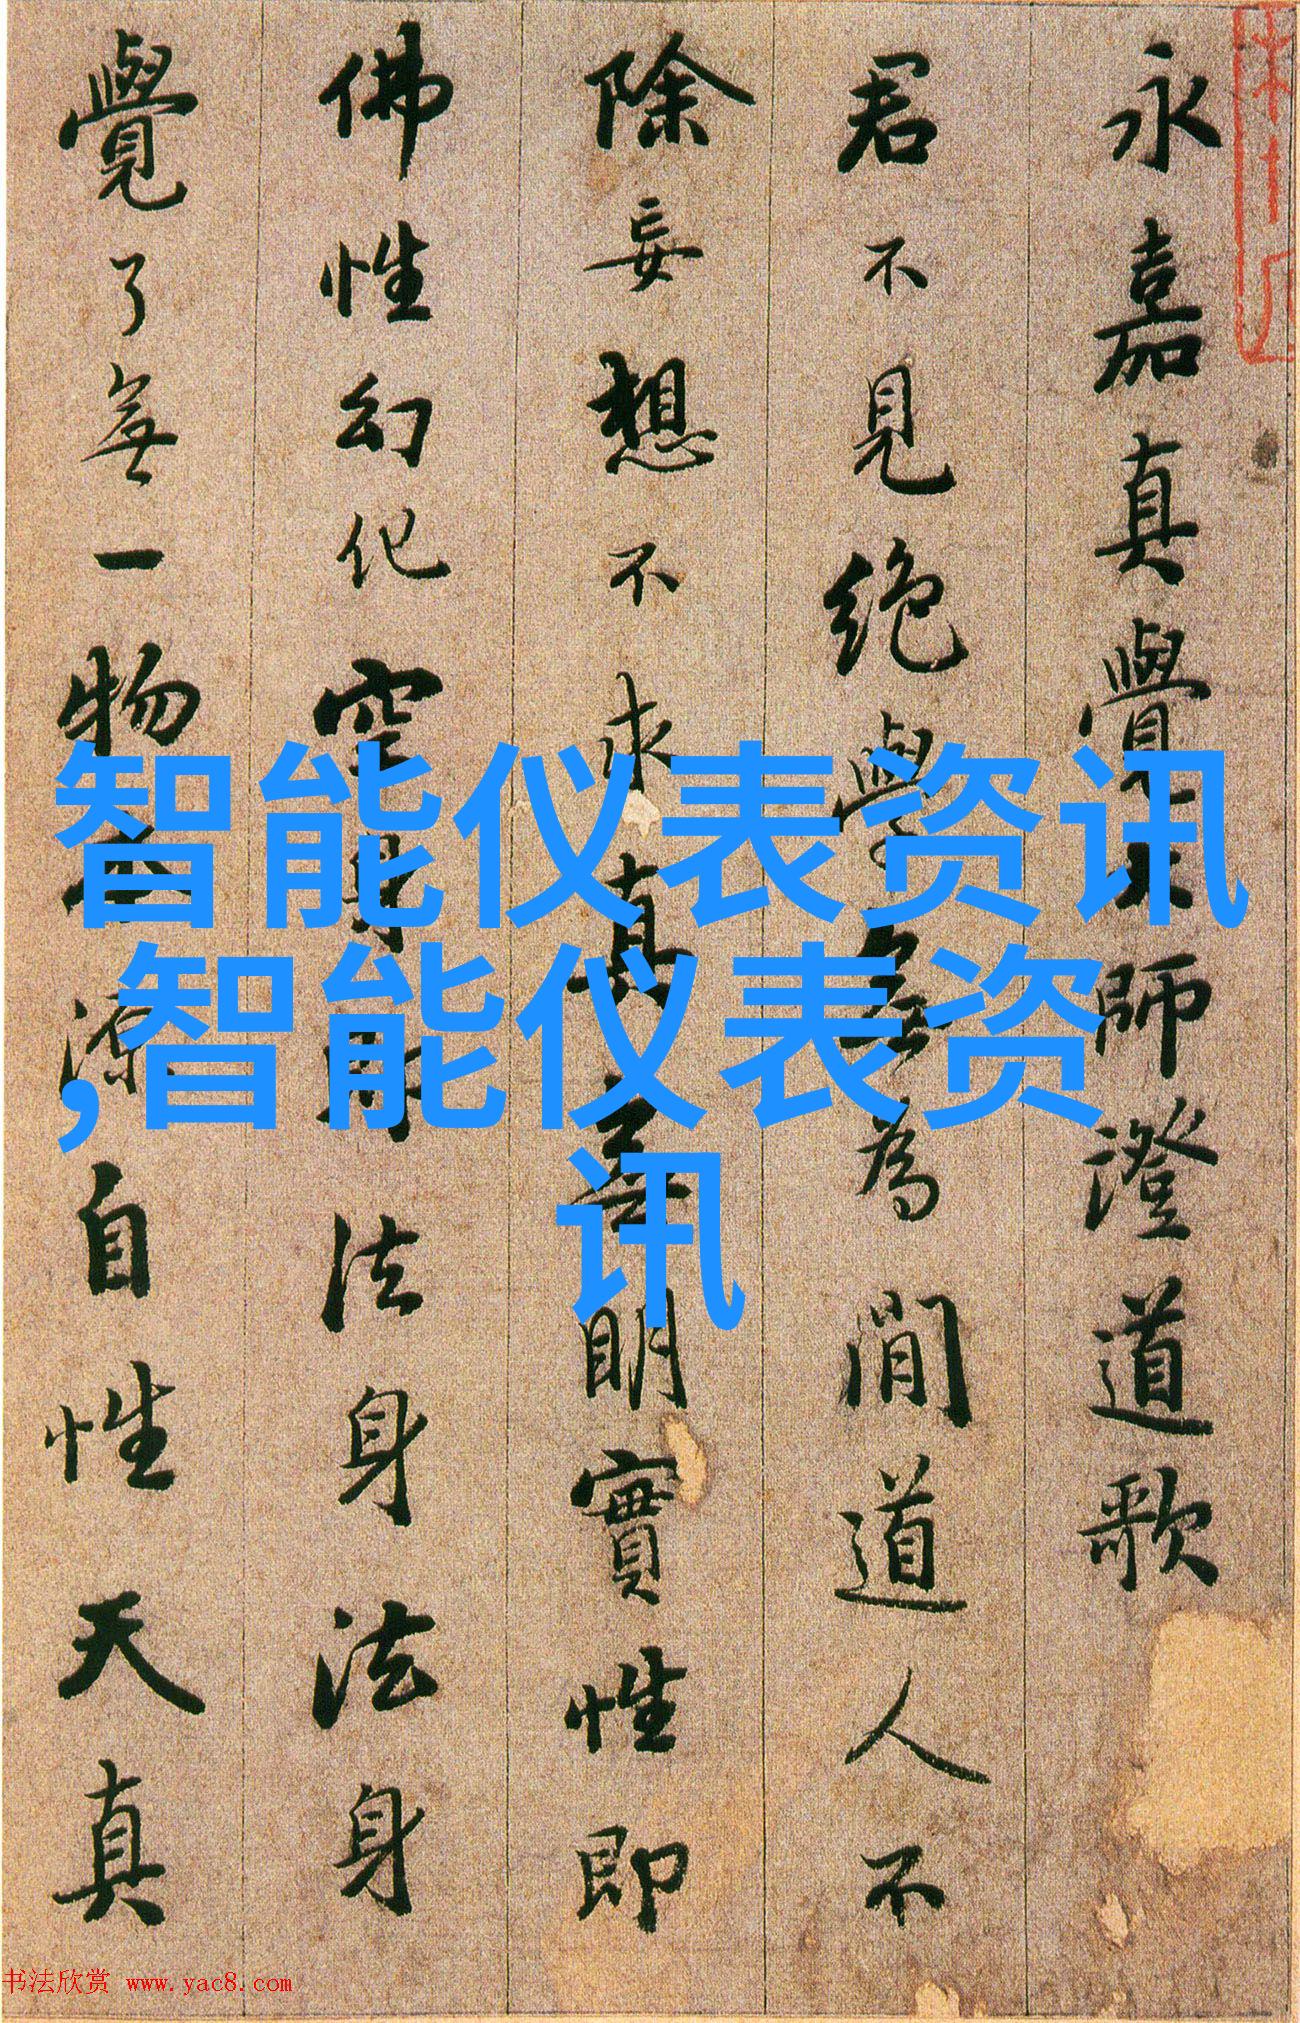 永嘉真覺大師澄道歌
君不見絶學無為閒道人不
除妄想不求真無明實性即
佛性幻化空身即法身法身
覺了無一物本源自性天真
智能仪表资讯
,智能仪表资
讯
书法欣赏 www.yac8.com